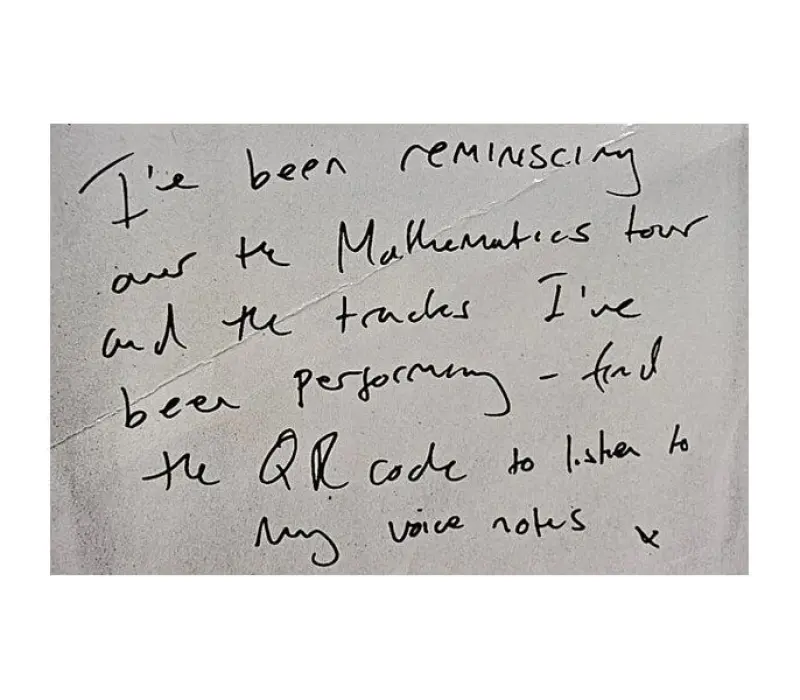 I've been reminiscing
over the Mathematics tour
and the tracks I've
been performing - find
the QR code to listen to
my voice notes x